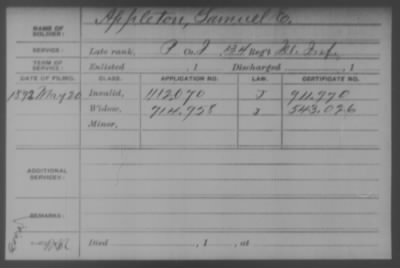 NAME OF SOLDIER: Appleton, Samuel C.
SERVICE: Late rank, P Co. I, 134 Reg't Ill. Inf.
TERM OF SERVICE: Enlisted , 1 Discharged , 1
DATE OF FILING. CLASS. APPLICATION NO. LAW. CERTIFICATE NO.
1892 May 20 Invalid, 1112.070 J 911.770
Widow, 714.958 J 543.026
Minor,
ADDITIONAL SERVICES:
REMARKS:
Died , 1 , at